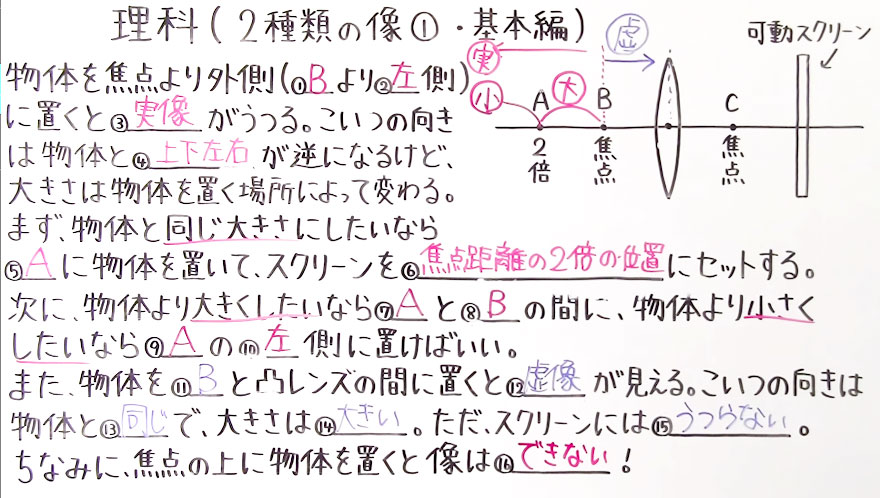 理科(2種類の像①・基本編)
実
虚
可動スクリーン
小
A
大
B
C
2倍
焦点
焦点
物体を焦点より外側(①Bより②左側)
に置くと③実像がうつる。こいつの向き
は物体と④上下左右が逆になるけど、
大きさは物体を置く場所によって変わる。
まず、物体と同じ大きさにしたいなら
⑤Aに物体を置いて、スクリーンを⑥焦点距離の2倍の位置にセットする。
次に、物体より大きくしたいなら⑦Aと⑧Bの間に、物体より小さく
したいなら⑨Aの⑩左側に置けばいい。
また、物体を⑪Bと凸レンズの間に置くと⑫虚像が見える。こいつの向きは
物体と⑬同じで、大きさは⑭大きい。ただ、スクリーンには⑮うつらない。
ちなみに、焦点の上に物体を置くと像は⑯できない!